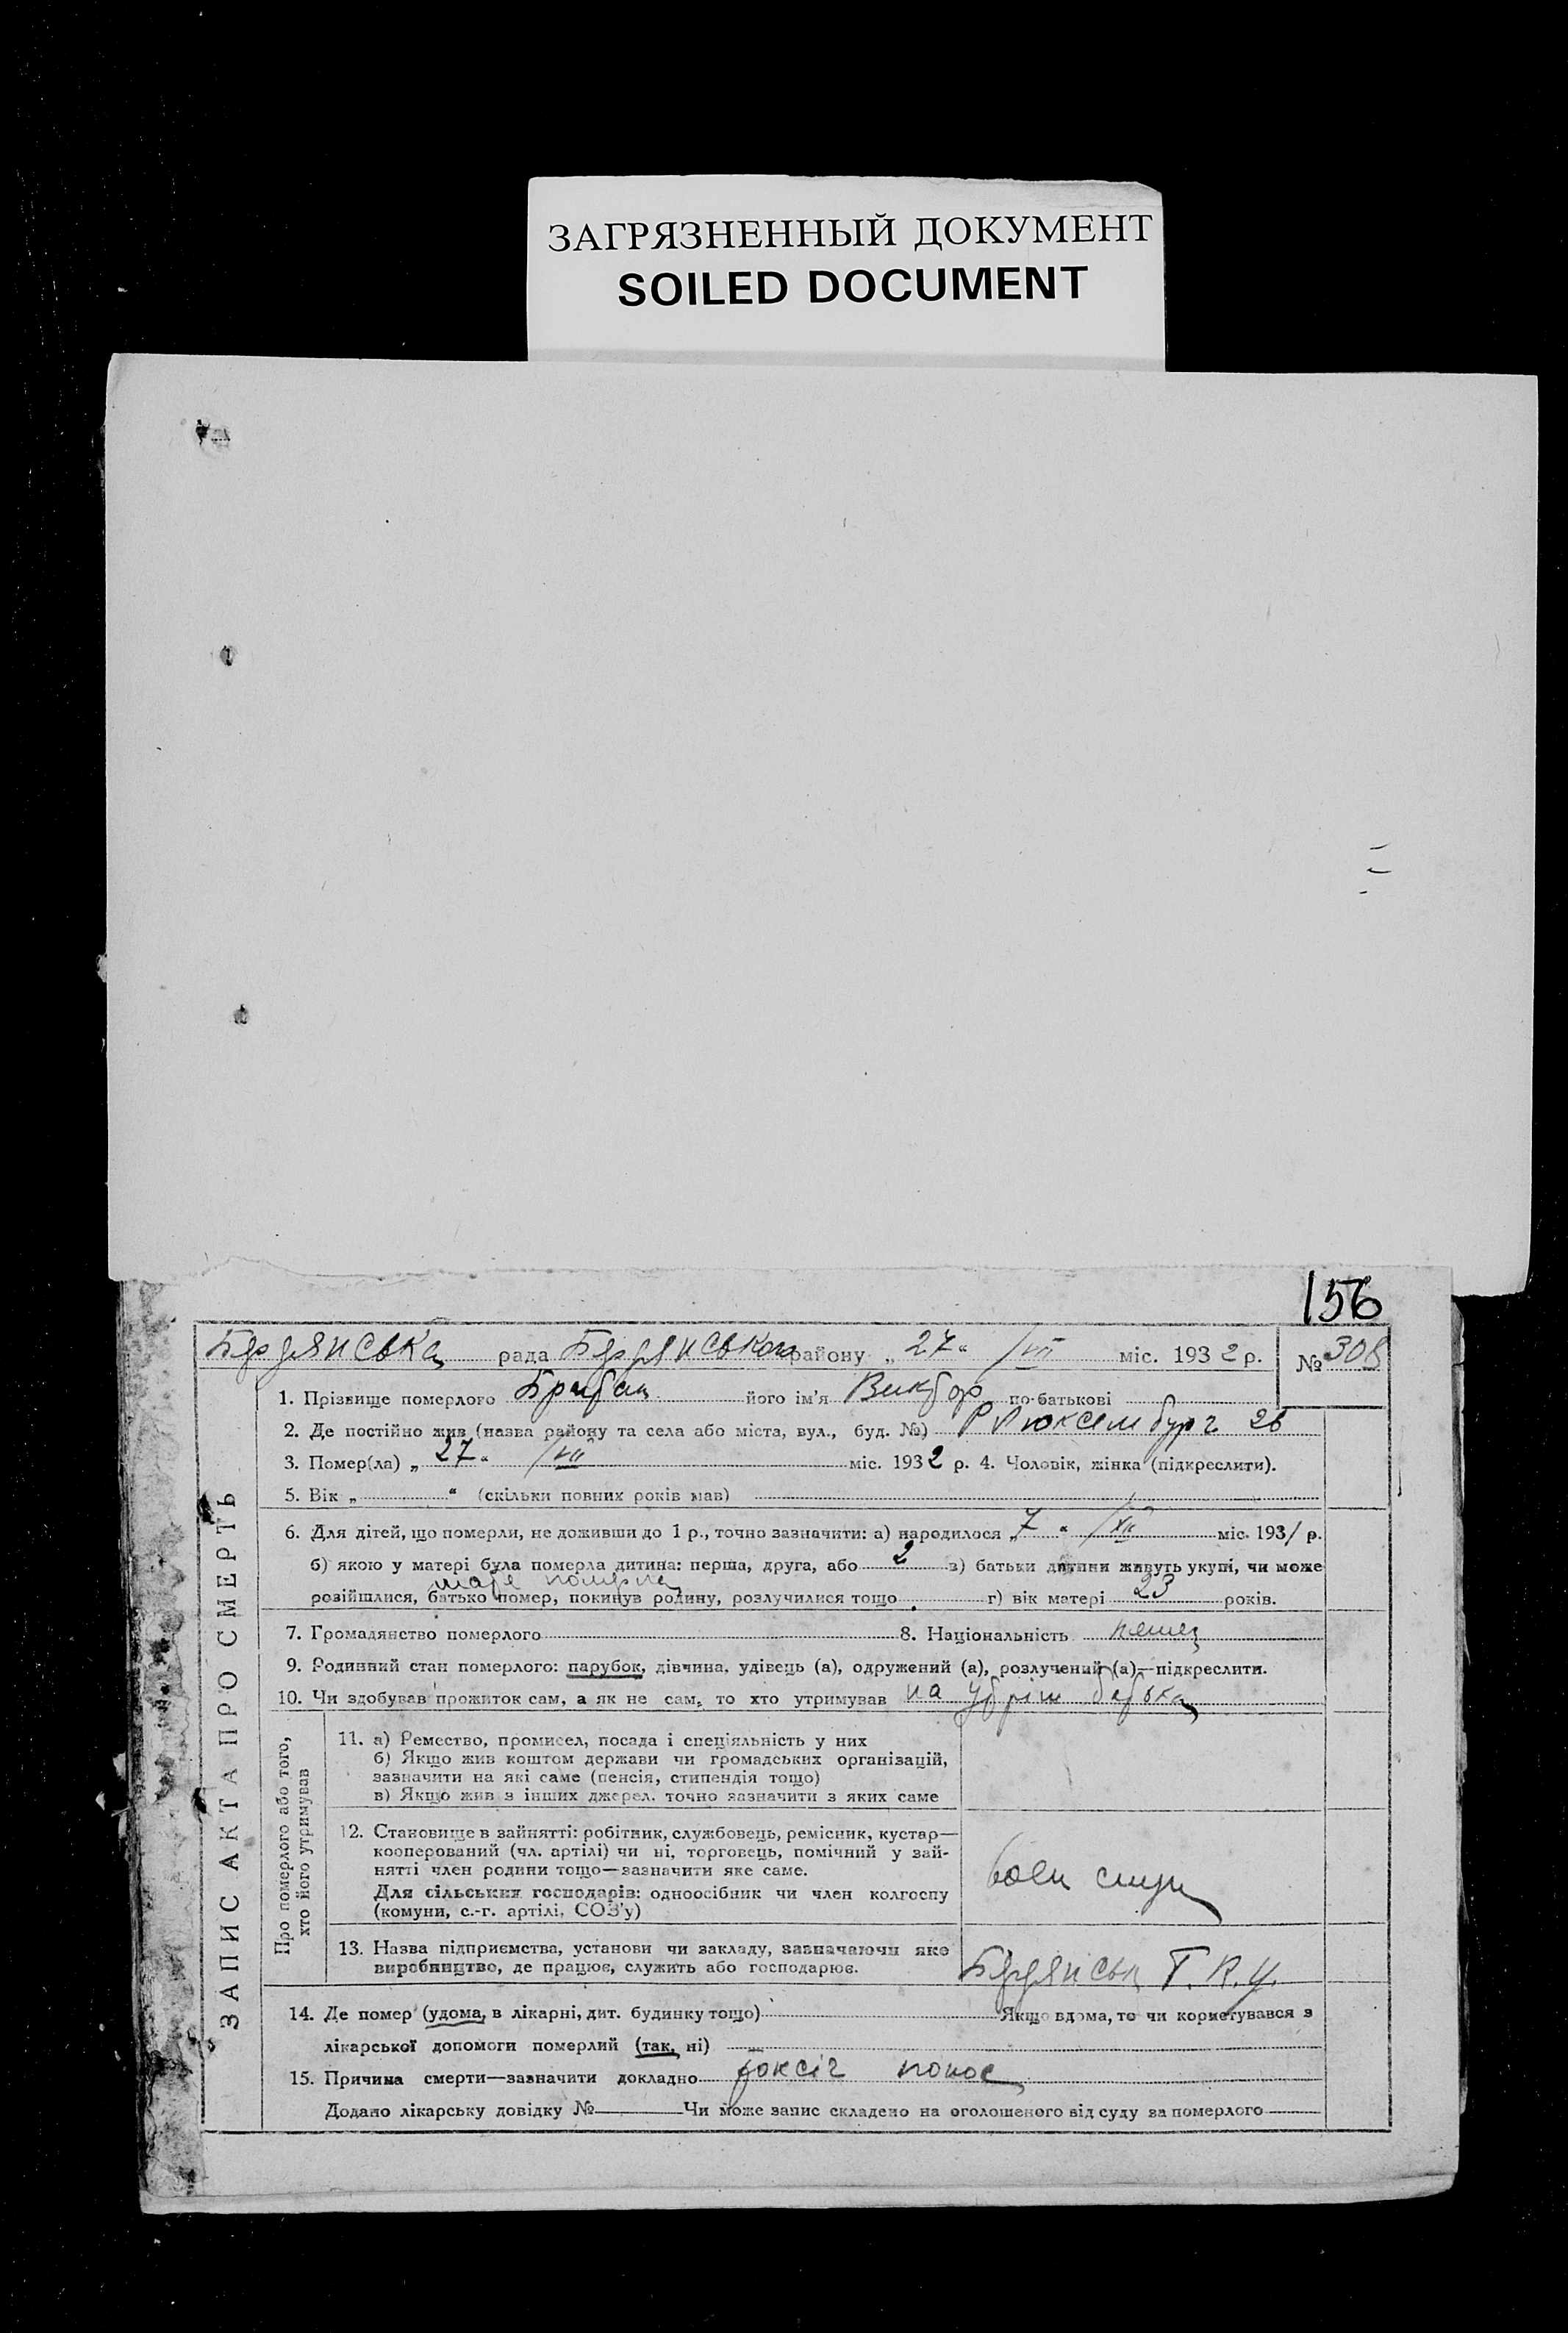 ЗАГРЯЗНЕННЫЙ ДОКУМЕНТ
SOILED DOCUMENT
156
Бердянська рада Бердянського району „ 27 “ /VII міс. 193 2 р. № 308
1. Прізвище померлого його ім'я Виктор по-батькові
2. Де постійно жив (назва району та села або міста, вул., буд. №) Р Люксембург 26
3. Помер(ла) „ 27 “ /VII міс. 193 2 р. 4. Чоловік, жінка (підкреслити).
5. Вік „ “ (скільки повних років мав)
6. Для дітей, що померли, не доживши до 1 р., точно зазначити: а) народилося „ 7 “ /XII міс. 193 1 р.
б) якою у матері була померла дитина: перша, друга, або 2 в) батьки дитини живуть укупі, чи може
мате померла
розійшлися, батько помер, покинув родину, розлучилися тощо г) вік матері 23 років.
7. Громадянство померлого 8. Національність немец
9. Родинний стан померлого: парубок, дівчина, удівець (а), одружений (а), розлучений (а)—підкреслити.
10. Чи здобував прожиток сам, а як не сам, то хто утримував на утрім батька
ЗАПИС АКТА ПРО СМЕРТЬ
Про померлого або того,
хто його утримував
11. а) Ремество, промисел, посада і спеціяльність у них
б) Якщо жив коштом держави чи громадських організацій,
зазначити на які саме (пенсія, стипендія тощо)
в) Якщо жив з інших джерел, точно зазначити з яких саме
12. Становище в зайнятті: робітник, службовець, ремісник, кустар—
кооперований (чл. артілі) чи ні, торговець, помічний у зай-
нятті член родини тощо—зазначити яке саме.
Для сільських господарів: одноосібник чи член колгоспу
(комуни, с.-г. артілі, СОЗ'у)
13. Назва підприємства, установи чи закладу, зазначаючи яке
виробництво, де працює, служить або господарює.
Бердянськ
14. Де помер (удома, в лікарні, дит. будинку тощо) Якщо вдома, то чи користувався з
лікарської допомоги померлий (так, ні)
15. Причина смерти—зазначити докладно токсіч понос
Додано лікарську довідку № Чи може запис складено на оголошеного від суду за померлого